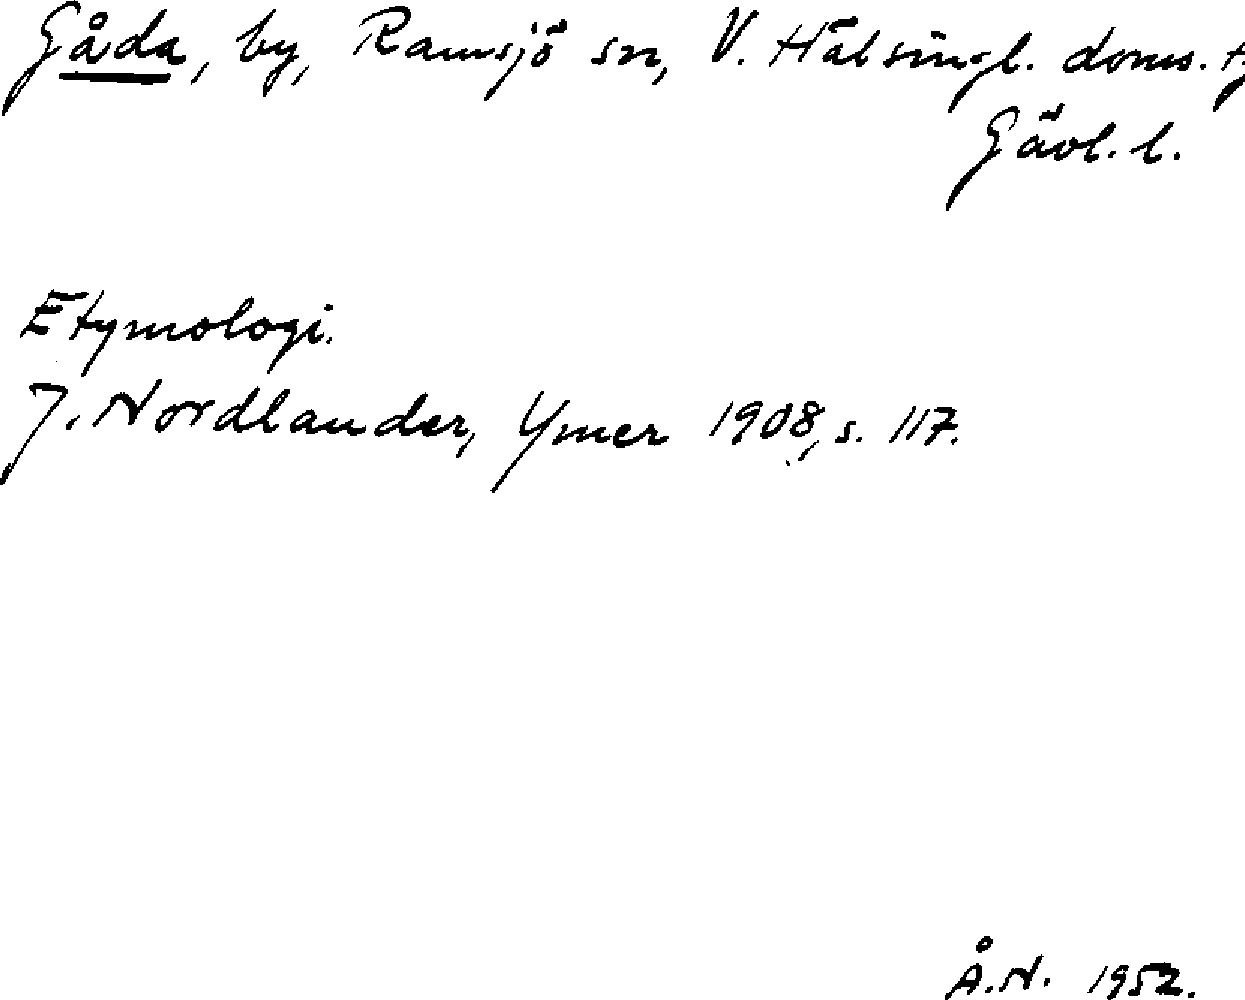 Gåda, by, Ramsjö sn, V. Hälsingl. doms.
Gävl. l.
Etymologi.
J. Nordlander, Ymer 1908, s. 117.
Å.N. 1952.